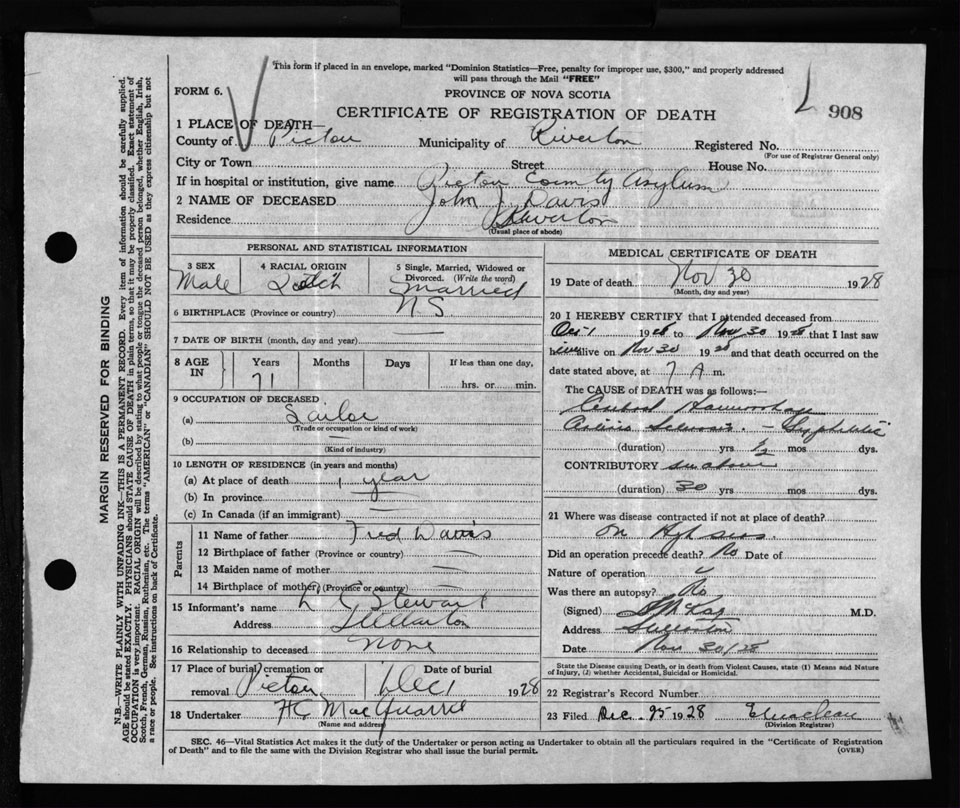 This form if placed in an envelope, marked "Dominion Statistics—Free, penalty for improper use, $300," and properly addressed
will pass through the Mail "FREE"
FORM 6.
PROVINCE OF NOVA SCOTIA
CERTIFICATE OF REGISTRATION OF DEATH
908
1 PLACE OF DEATH—
County of Pictou Municipality of Riverton Registered No.
(For use of Registrar General only)
City or Town Street House No.
If in hospital or institution, give name Pictou County Asylum
2 NAME OF DECEASED John J Davis
Residence Riverton
(Usual place of abode)
PERSONAL AND STATISTICAL INFORMATION
3 SEX 4 RACIAL ORIGIN 5 Single, Married, Widowed or
Divorced. (Write the word)
Male Married
6 BIRTHPLACE (Province or country) N S.
7 DATE OF BIRTH (month, day and year)
8 AGE IN Years Months Days If less than one day,
71 hrs. or min.
9 OCCUPATION OF DECEASED
(a) Sailor
(Trade or occupation or kind of work)
(b) —
(Kind of industry)
10 LENGTH OF RESIDENCE (in years and months)
(a) At place of death 1 year
(b) In province —
(c) In Canada (if an immigrant) —
Parents
11 Name of father Fred Davis
12 Birthplace of father (Province or country) —
13 Maiden name of mother —
14 Birthplace of mother (Province or country)
15 Informant's name Stewart
Address Stellarton
16 Relationship to deceased None
17 Place of burial, cremation or Date of burial
removal Pictou Dec 1 1928
18 Undertaker MacQuarrie
(Name and address)
MEDICAL CERTIFICATE OF DEATH
19 Date of death Nov 30 1928
(Month, day and year)
20 I HEREBY CERTIFY that I attended deceased from
Oct 1 1928 to Nov 30 1928 that I last saw
alive on Nov 30 1928 and that death occurred on the
date stated above, at 7 A m.
The CAUSE of DEATH was as follows:—
Cerebral Haemorrhage
Arterio Sclerosis — Syphilitic
(duration) yrs 1/2 mos dys.
CONTRIBUTORY
(duration) 30 yrs mos dys.
21 Where was disease contracted if not at place of death?
on high seas.
Did an operation precede death? No Date of
Nature of operation
Was there an autopsy? No
(Signed) M.D.
Address Stellarton
Date Nov 30/28
State the Disease causing Death, or in death from Violent Causes, state (1) Means and Nature
of Injury, (2) whether Accidental, Suicidal or Homicidal.
22 Registrar's Record Number
23 Filed Dec. 1928
(Division Registrar)
SEC. 46—Vital Statistics Act makes it the duty of the Undertaker or person acting as Undertaker to obtain all the particulars required in the "Certificate of Registration
of Death" and to file the same with the Division Registrar who shall issue the burial permit.
(OVER)
MARGIN RESERVED FOR BINDING
N.B.—WRITE PLAINLY WITH UNFADING INK—THIS IS A PERMANENT RECORD. Every item of information should be carefully supplied.
AGE should be stated EXACTLY. PHYSICIANS should STATE CAUSE OF DEATH in plain terms, so that it may be properly classified. Exact statement of
OCCUPATION is very important. RACIAL ORIGIN will be described by stating to what people or tongue the deceased person belonged, whether English, Irish,
Scotch, French, German, Russian, Ruthenian, etc. The terms "AMERICAN" or "CANADIAN" SHOULD NOT BE USED as they express citizenship but not
a race or people. See instructions on back of Certificate.